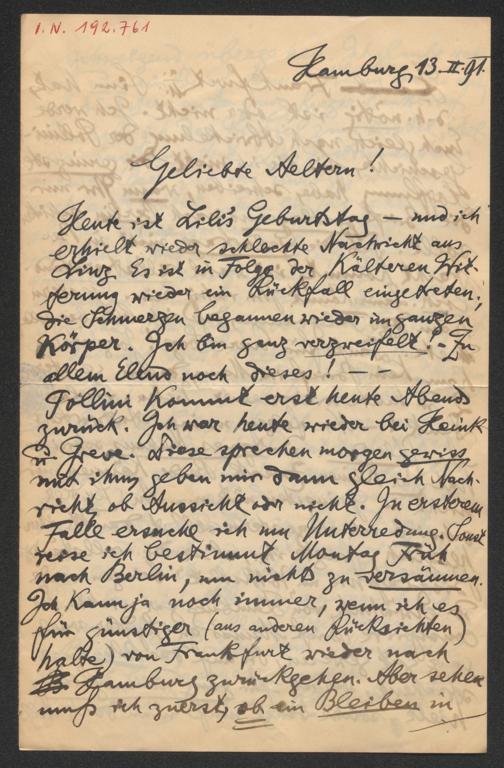 I.N. 192.761
Hamburg 13.II.91.
Geliebte Aeltern!
Heute ist Lili's Geburtstag – und ich
erhielt wieder schlechte Nachricht aus
Linz. Es ist in Folge der kälteren Wit-
terung wieder ein Rückfall eingetreten,
die Schmerzen begannen wieder im ganzen
Körper. Ich bin ganz verzweifelt! – Zu
allem Elend noch dieses! – –
Pollini kommt erst heute Abend
zurück. Ich war heute wieder bei Heink
u. Greve. Diese sprechen morgen gewiss
mit ihm, geben mir dann gleich Nach-
richt, ob Aussicht oder nicht. In ersterem
Falle ersuche ich um Unterredung. Sonst
reise ich bestimmt Montag Früh
nach Berlin, um nichts zu versäumen.
Ich kann ja noch immer, wenn ich es
für günstiger (aus anderen Rücksichten)
halte, von Frankfurt wieder nach
Hamburg zurückgehen. Aber sehen
muß ich zuerst, ob ein Bleiben in